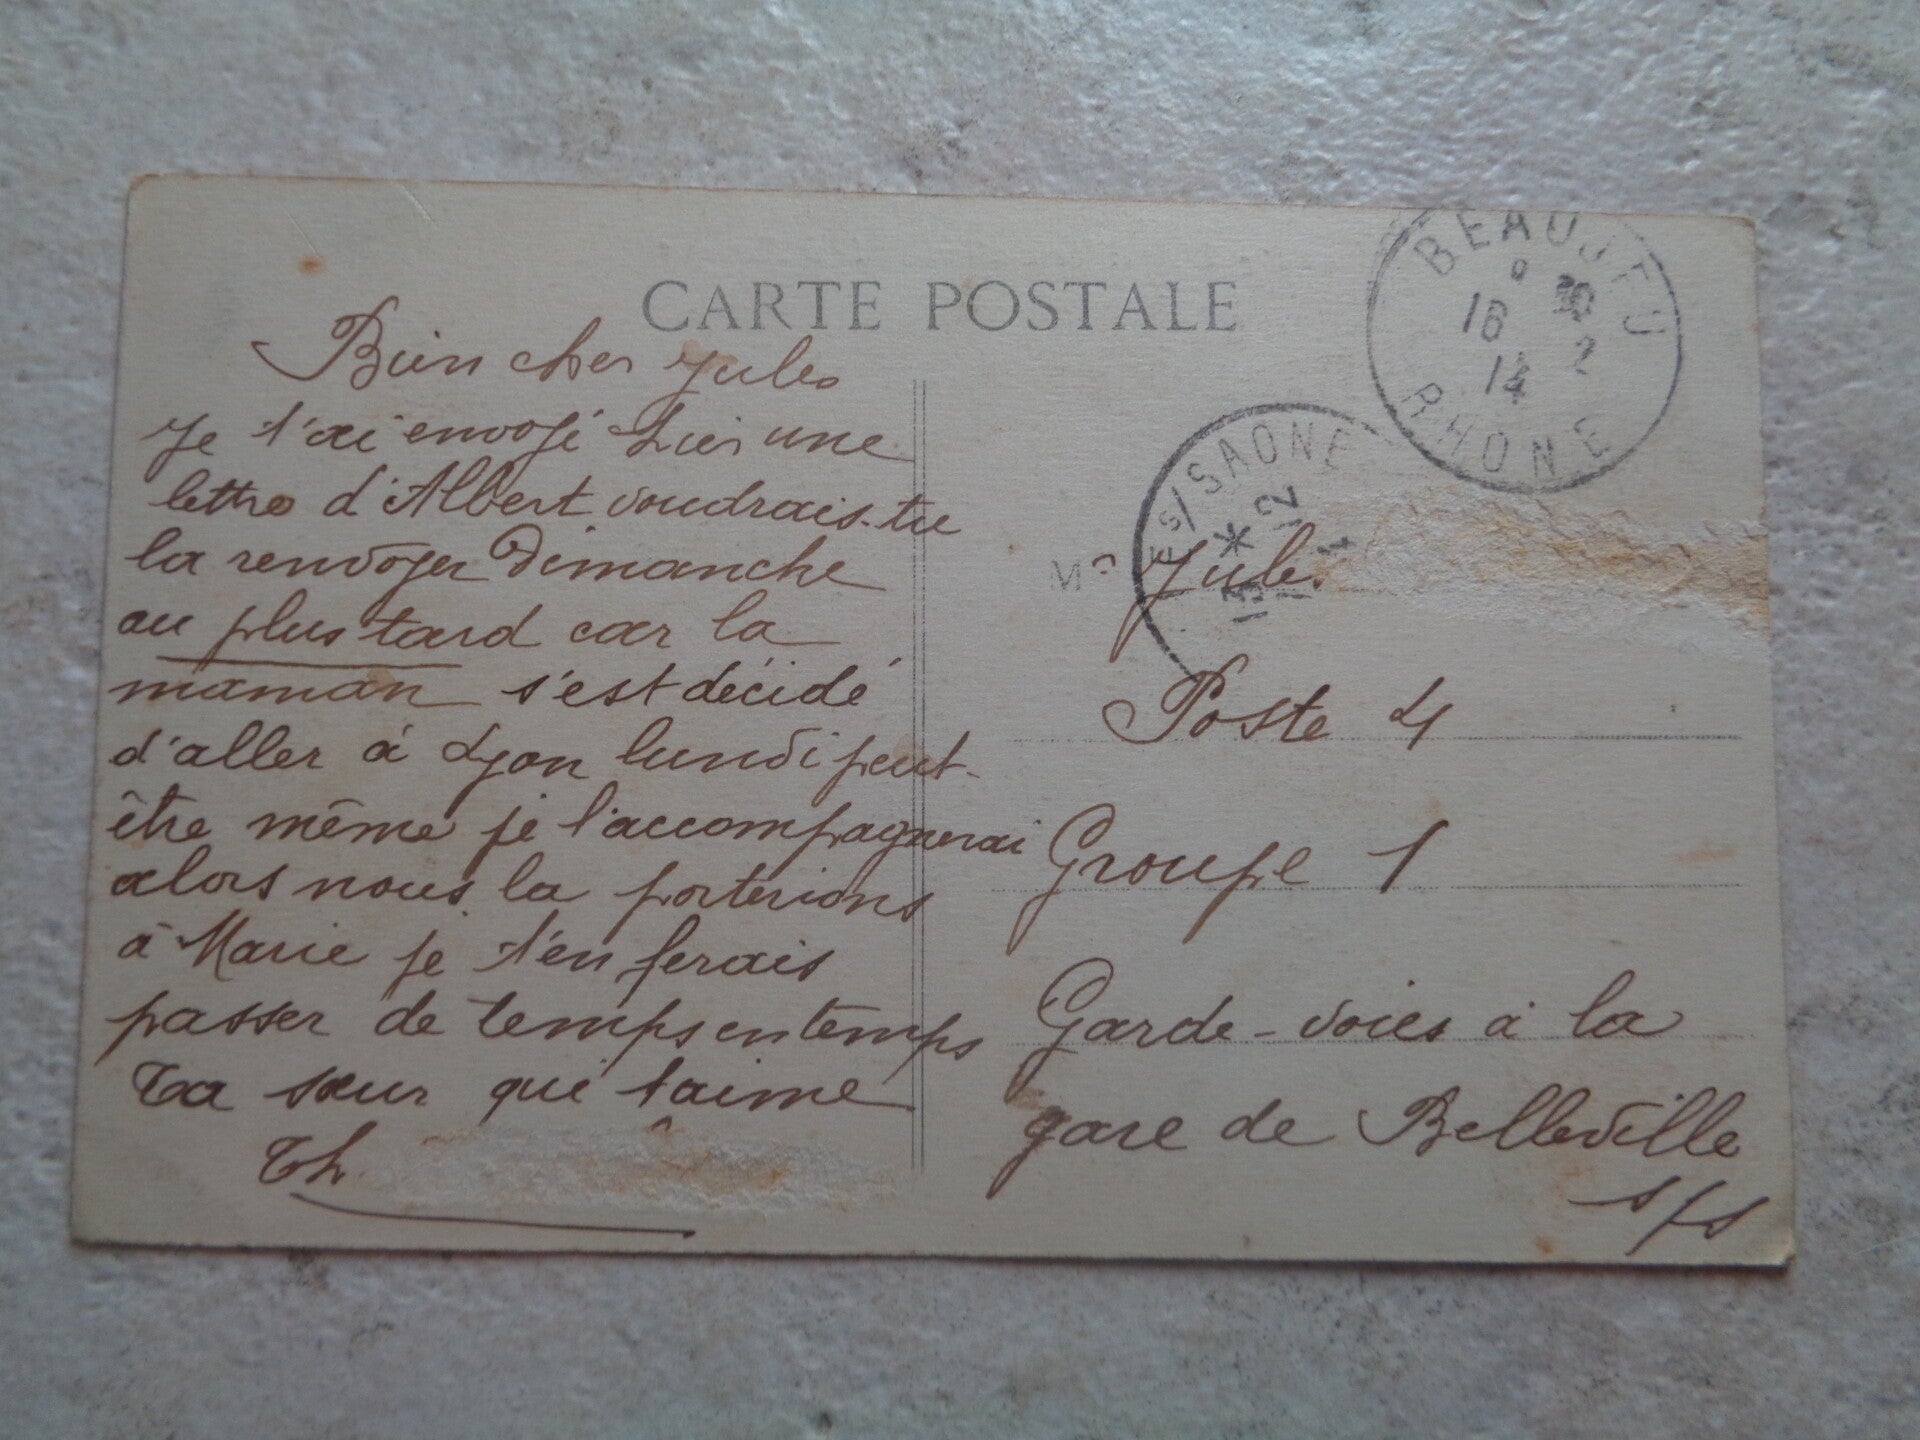 CARTE POSTALE
Bien cher Jules
Je t'ai envoyé hier une
lettre d'Albert voudrais-tu
la renvoyer Dimanche
au plus tard car la
maman s'est décidé
d'aller à Lyon lundi peut-
être même je l'accompagnerai
alors nous la porterions
à Marie je t'en ferais
passer de temps en temps
Ta sœur qui t'aime
Th
BEAUJEU
16
2
14
RHONE
S/SAONE
*
12
13
14
Jules
Poste 4
Groupe 1
Garde-voies à la
gare de Belleville
s/s